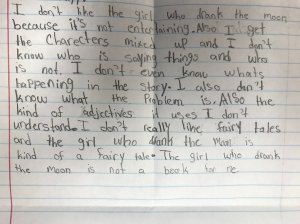 I don't like the girl who drank the moon
because it's not entertaining. Also I get
the Charecters mixed up and I don't
know who is saying things and who
is not. I don't even know whats
happening in the story. I also don't
know what the Problem is. Also the
kind of adjectives it uses I don't
understand. I don't really like fairy tales
and the girl who drank the moon is
kind of a fairy tale. The girl who drank
the moon is not a book for me